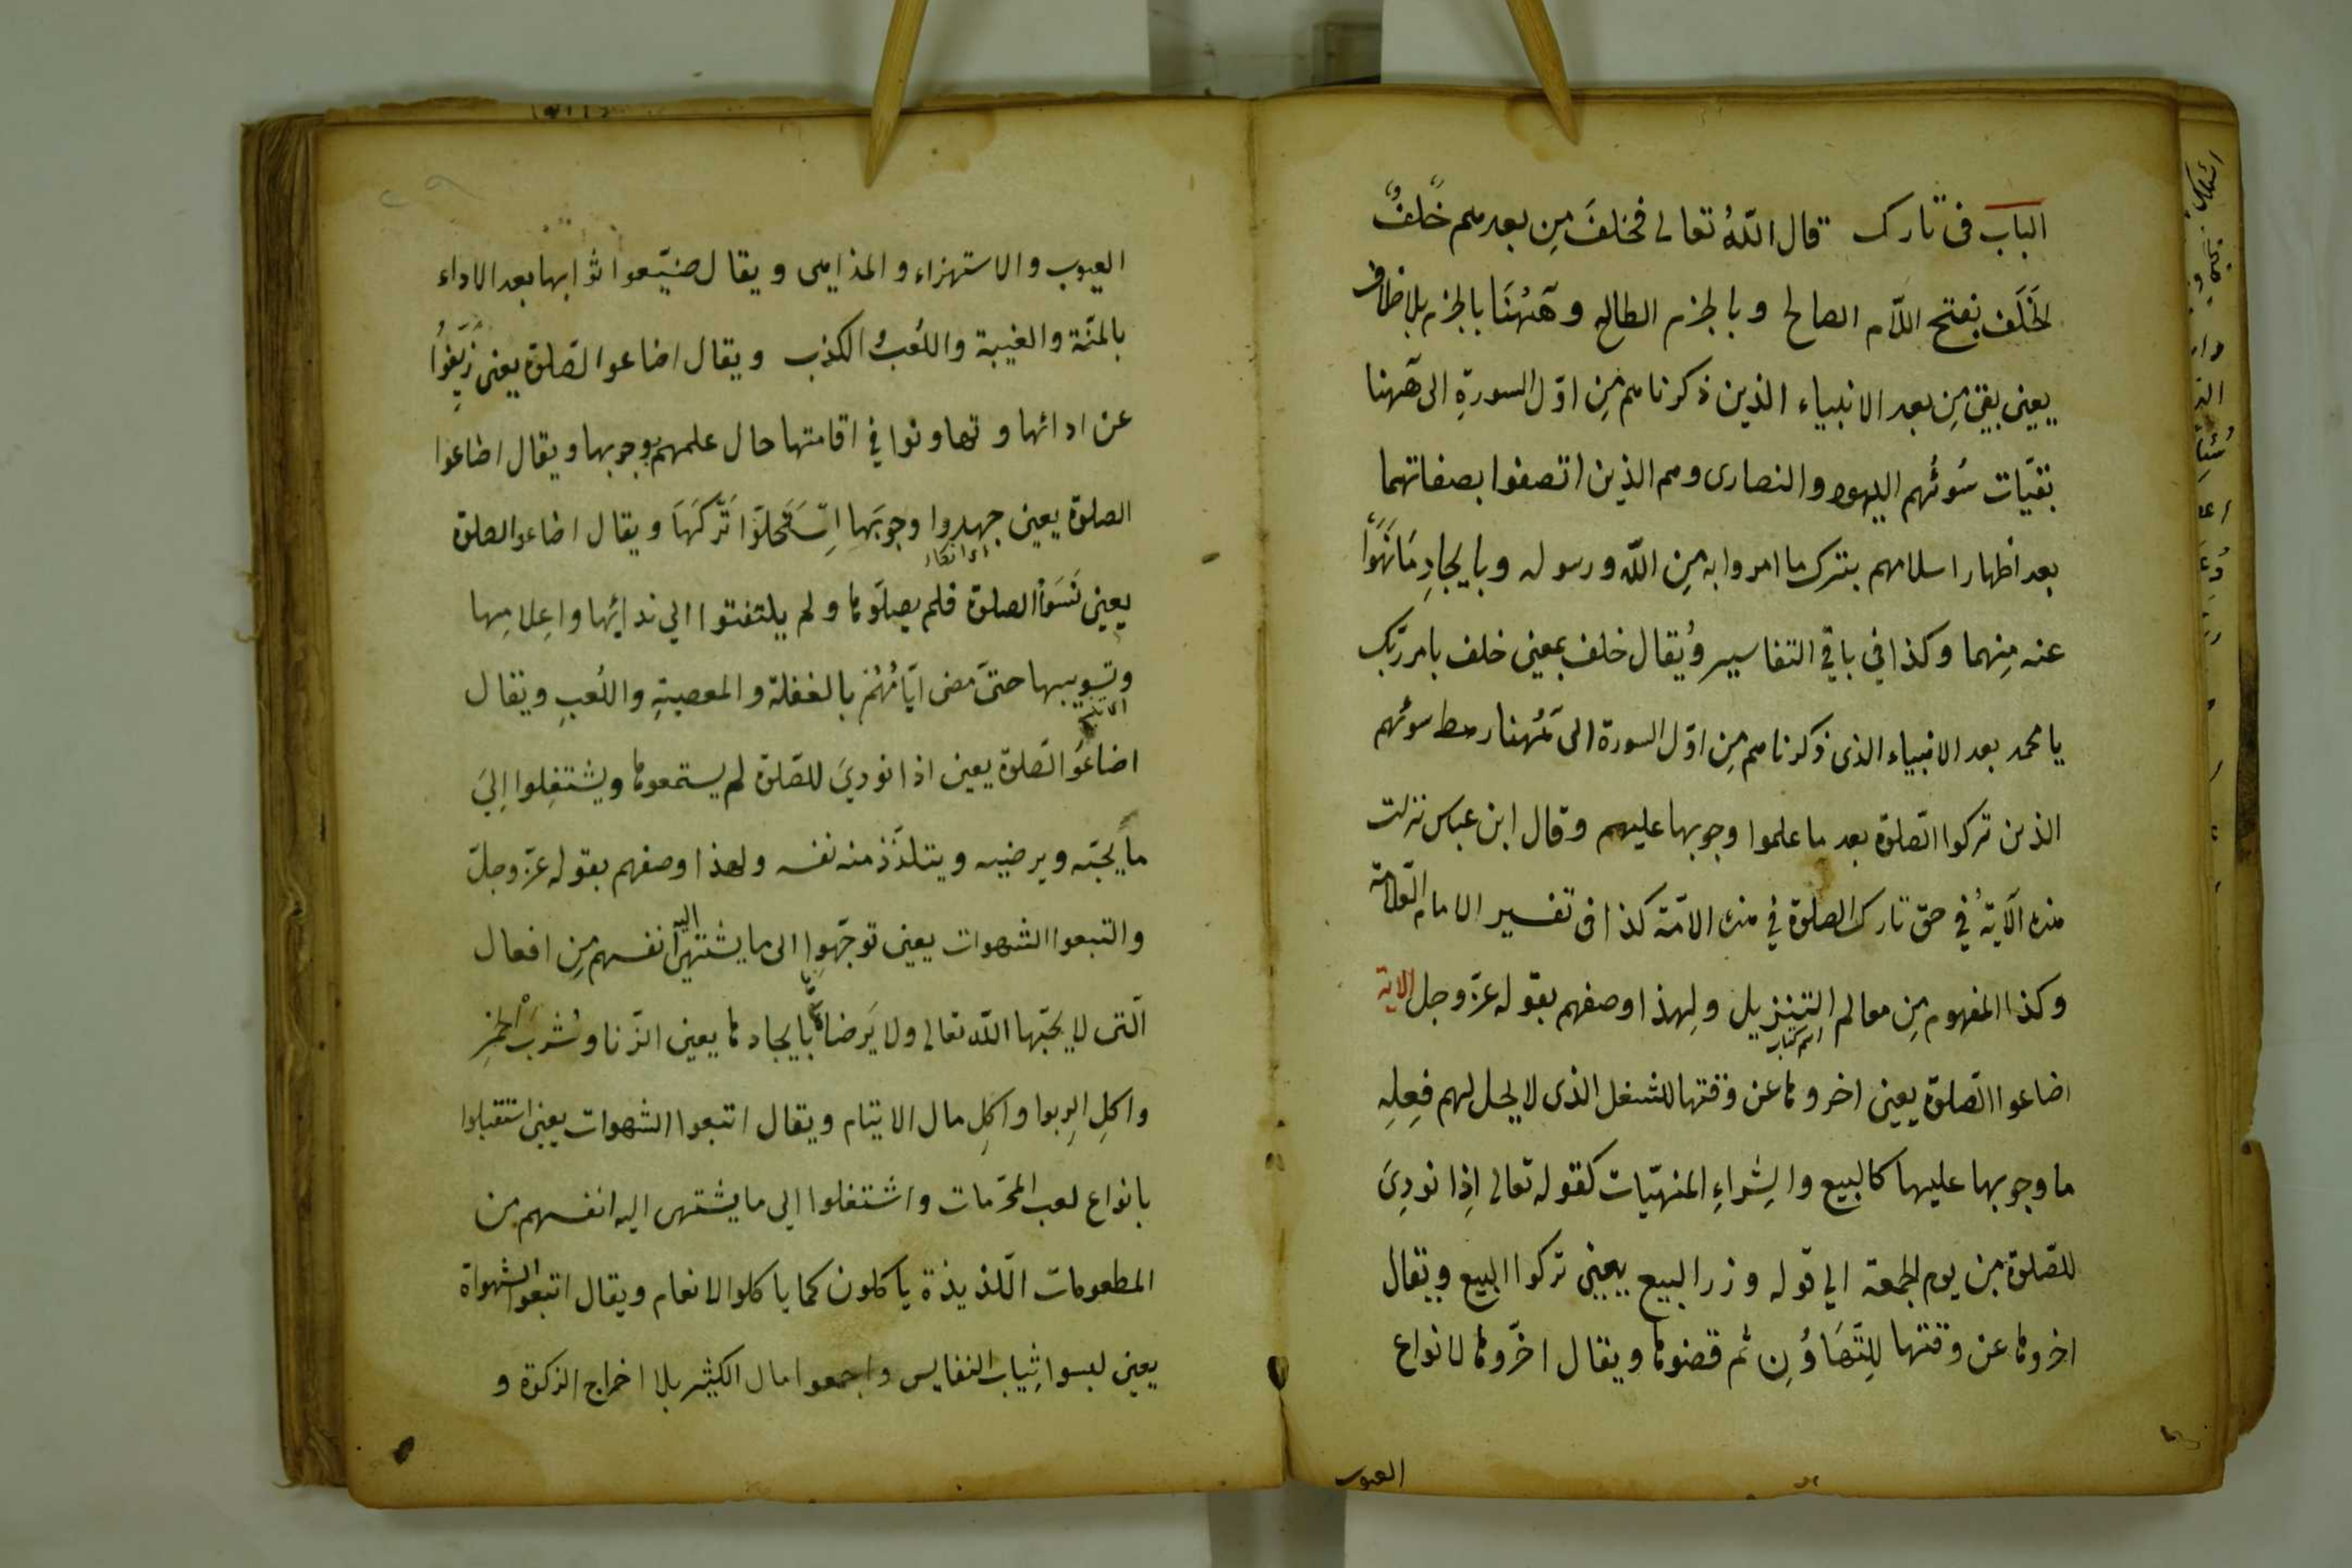 الباب في تارك قال الله تعالى فخلف من بعدهم خلف
الخلف بفتح اللام الصالح وبالجزم الطالح وههنا بالجزم بلا خلاف
يعني بقي من بعد الانبياء الذين ذكرناهم من اوّل السورة الى ههنا
بقيّات سوئهم اليهود والنصارى وهم الذين اتصفوا بصفاتهما
بعد اظهار اسلامهم بترك ما امروا به من الله ورسوله وبايجاد ما نهوا
عنه منهما وكذا في باقي التفاسير ويقال خلف بمعنى خلف بامر ربّك
يا محمد بعد الانبياء الذي ذكرناهم من اوّل السورة الى ههنا رهط سوئهم
الذين تركوا الصّلوة بعد ما علموا وجوبها عليهم وقال ابن عباس نزلت
هذه الآية في حق تارك الصلوة في هذه الامّة كذا في تفسير الامام العلامة
وكذا المفهوم من معالم التنزيل ولهذا وصفهم بقوله عزّ وجل الاية
اسم كتاب
اضاعوا الصّلوة يعني اخروها عن وقتها للشغل الذي لا يحل لهم فعله
ما وجوبها عليها كالبيع والشراء المنهيّات كقوله تعالى اذا نودي
للصّلوة من يوم الجمعة الى قوله وذر البيع يعني تركوا البيع ويقال
اخروها عن وقتها للتهاون ثم قضوها ويقال اخّروها لانواع
العيوب
العيوب والاستهزاء والمذاهى ويقال ضيّعوا ثوابها بعد الاداء
بالمنّة والغيبة واللعب والكذب ويقال اضاعوا الصّلوة يعني زيفوا
عن ادائها وتهاونوا في اقامتها حال علمهم بوجوبها ويقال اضاعوا
الصلوة يعني جهدوا وجوبها استحلّوا تركها ويقال اضاعوا الصلوة
اى انكار
يعني نسوا الصلوة فلم يصلّوها ولم يلتفتوا الى ندائها واعلامها
وتسويبها حتى مضى ايّامهم بالغفلة والمعصية واللعب ويقال
اضاعوا الصّلوة يعني اذا نودي للصّلوة لم يستمعوها ويشتغلوا الى
ما يحبّه ويرضيه ويتلذّذ منه نفسه ولهذا وصفهم بقوله عزّ وجلّ
واتبعوا الشهوات يعني توجّهوا الى ما يشتهى اليه انفسهم من افعال
الّتي لا يحبّها الله تعالى ولا يرضاها بايجادها يعني الزّنا وشرب الخمر
واكل الربوا واكل مال الايتام ويقال اتبعوا الشهوات يعني استقبلوا
بانواع لعب المحرّمات واشتغلوا الى ما يشتهى اليه انفسهم من
المطعومات اللّذيذة ياكلون كما ياكلوا الانعام ويقال اتبعوا الشهواة
يعني لبسوا ثياب النفايس واجمعوا مال الكثير بلا اخراج الزكوة و